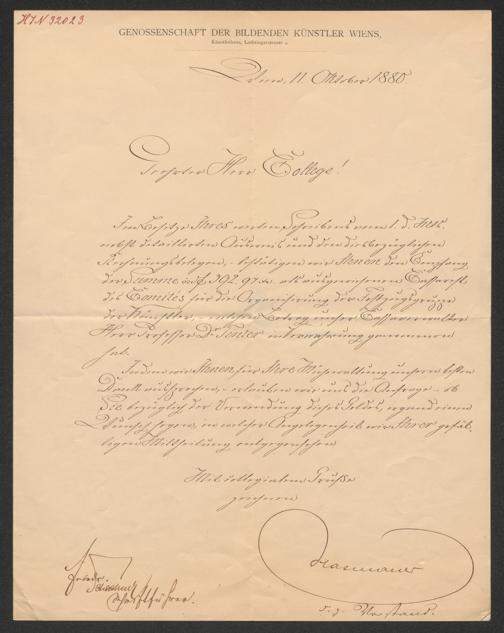 HIN 32023
GENOSSENSCHAFT DER BILDENDEN KÜNSTLER WIENS,
Künstlerhaus, Lothringerstrasse 9.
Wien, 11. Oktober 1880.
Geehrter Herr College!
Im Besitze Ihres werten Schreibens vom 1. d. Mts.
nebst detaillirten Ausweis und den diesbezüglichen
Rechnungsbelegen, bestätigen wir Ihnen den Empfang
der Summe von f. 392.97 als ausgewiesenen Casserest
des Comités für die Organisirung der Festzugsgruppe
der Künstler, welchen Betrag unser Cassaverwalter
Herr Professor Dr. in Verwahrung genommen
hat.
Indem wir Ihnen für Ihre Mühewaltung unsern besten
Dank aussprechen, erlauben wir uns die Anfrage, ob
Sie bezüglich der Verwendung dieses Geldes, irgend einen
Wunsch hegen, in welcher Angelegenheit wir Ihrer gefäl-
ligen Mittheilung entgegensehen.
Mit collegialem Gruße
zeichnen
Friedr.
Schriftführer.
d. z. Vorstand.